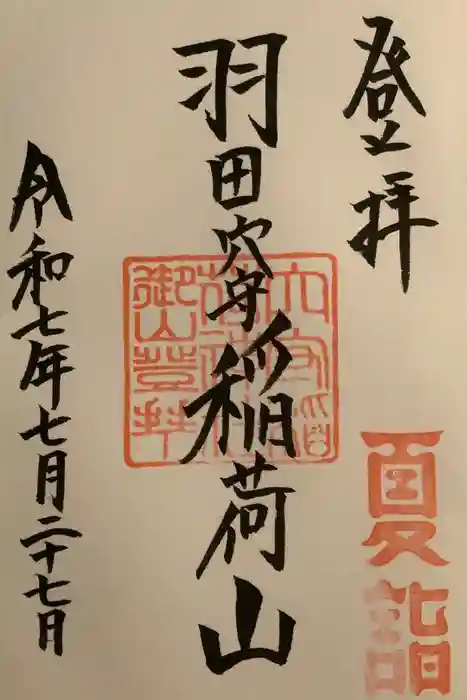 登拝
夏詣
羽田穴守稲荷山
穴守稲荷神社御山登拝
令和七年七月二十七日